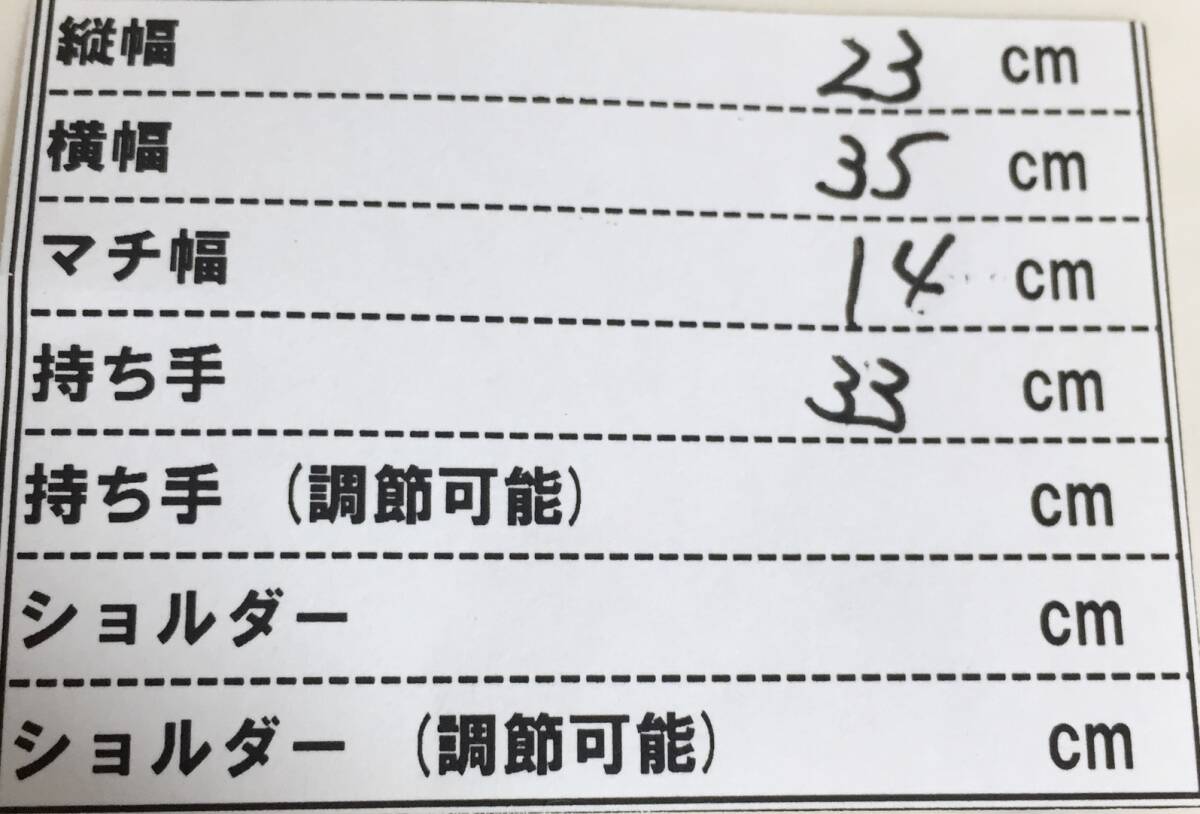 縦幅 23 cm
横幅 35 cm
マチ幅 14 cm
持ち手 33 cm
持ち手 (調節可能) cm
ショルダー cm
ショルダー (調節可能) cm